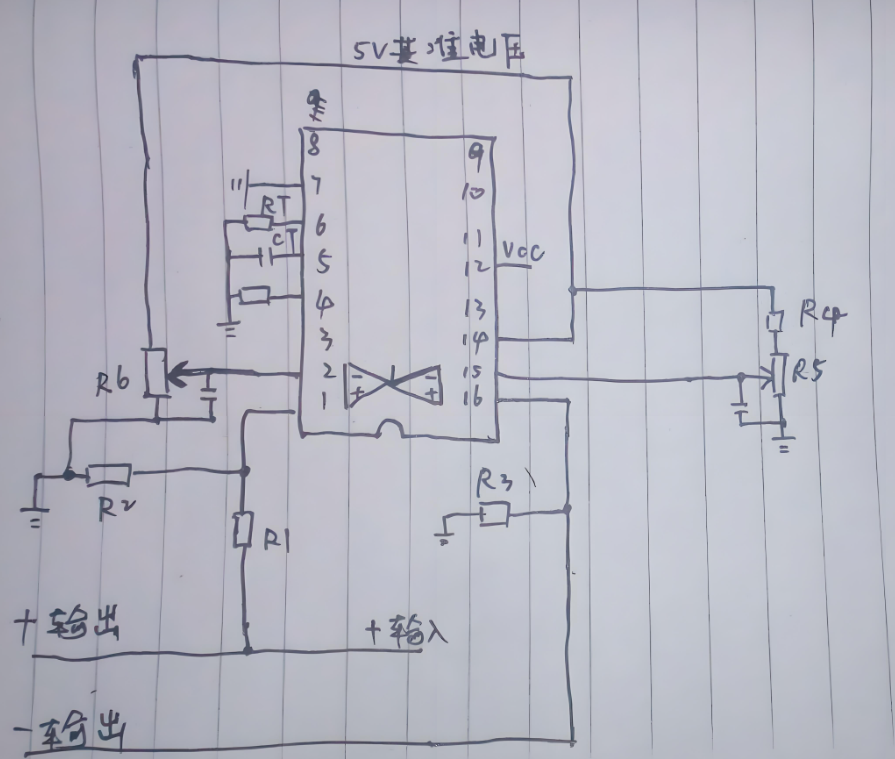 5V基准电压
8 9
7 10
RT
6 11
CT
5 VCC
12
4 13
3 14
R4
R6 2 - - 15 R5
1 + + 16
R2 R3
R1
+输出 +输入
-输出